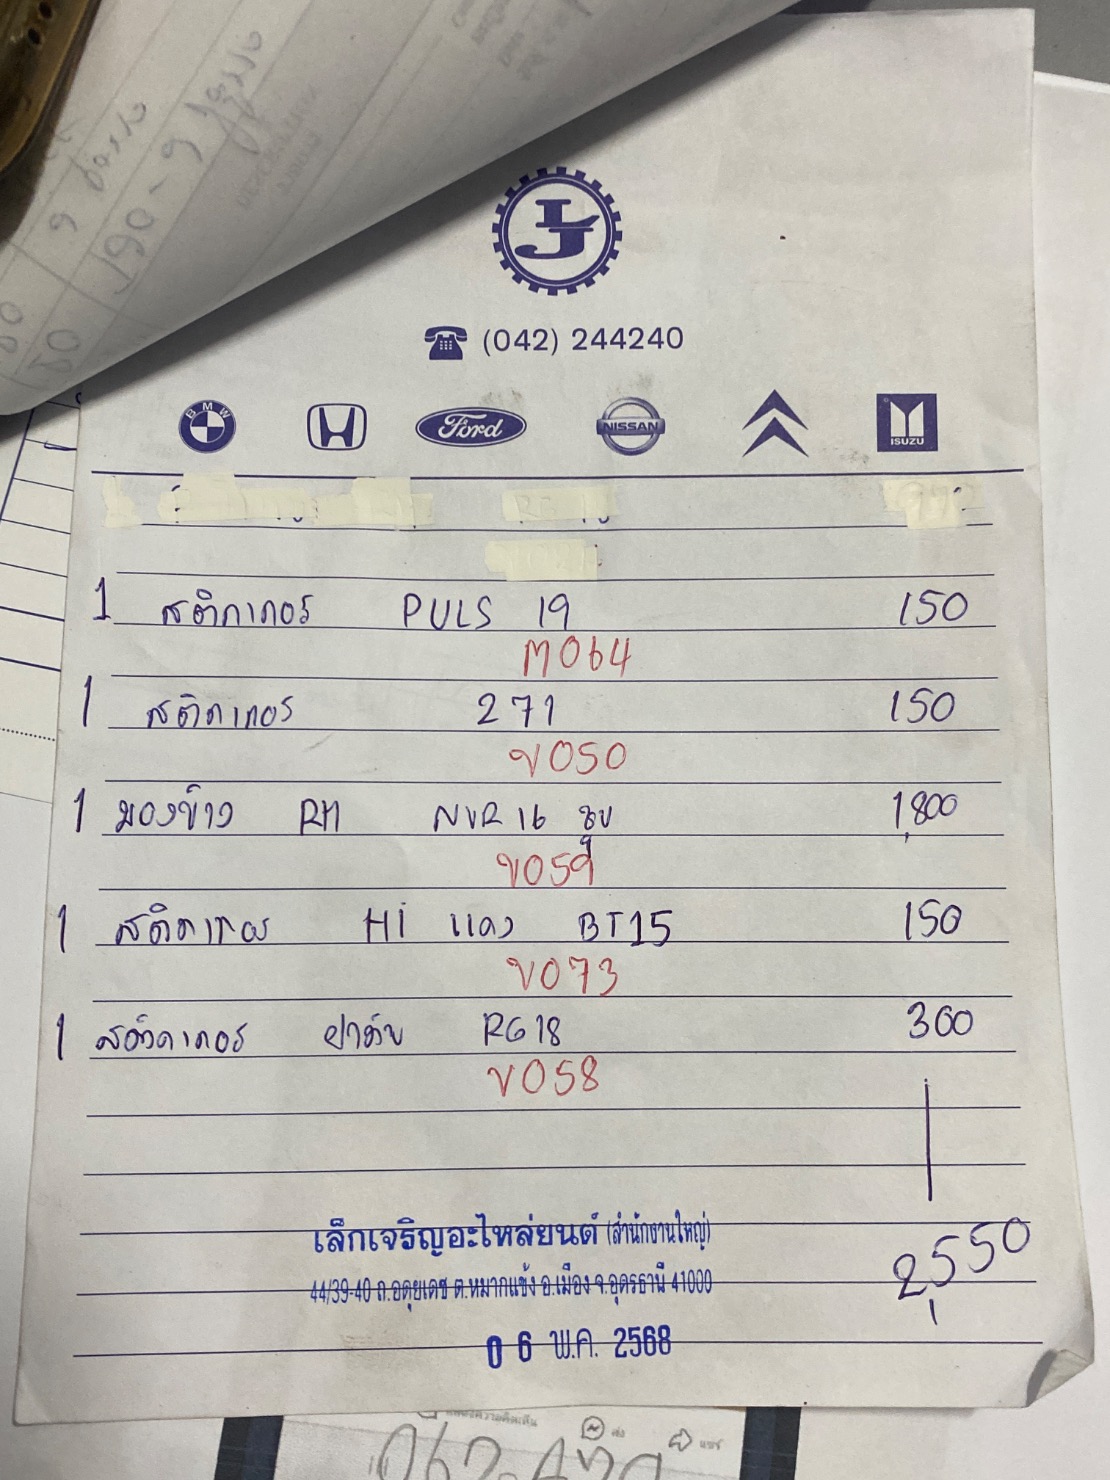 LJ
(042) 244240
BMW
Ford
NISSAN
ISUZU
1 สติกเกอร์ PULS 19 150
M064
1 สติกเกอร์ 271 150
V050
1 มองข้าง RH NVR16 ชุบ 1,800
V059
1 สติกเกอร์ Hi แดง BT15 150
V073
1 สติกเกอร์ ฝาดับ RG18 300
V058
เล็กเจริญอะไหล่ยนต์ (สำนักงานใหญ่)
44/39-40 ถ.อดุยเดช ต.หมากแข้ง อ.เมือง จ.อุดรธานี 41000
2,550
06 พ.ค. 2568